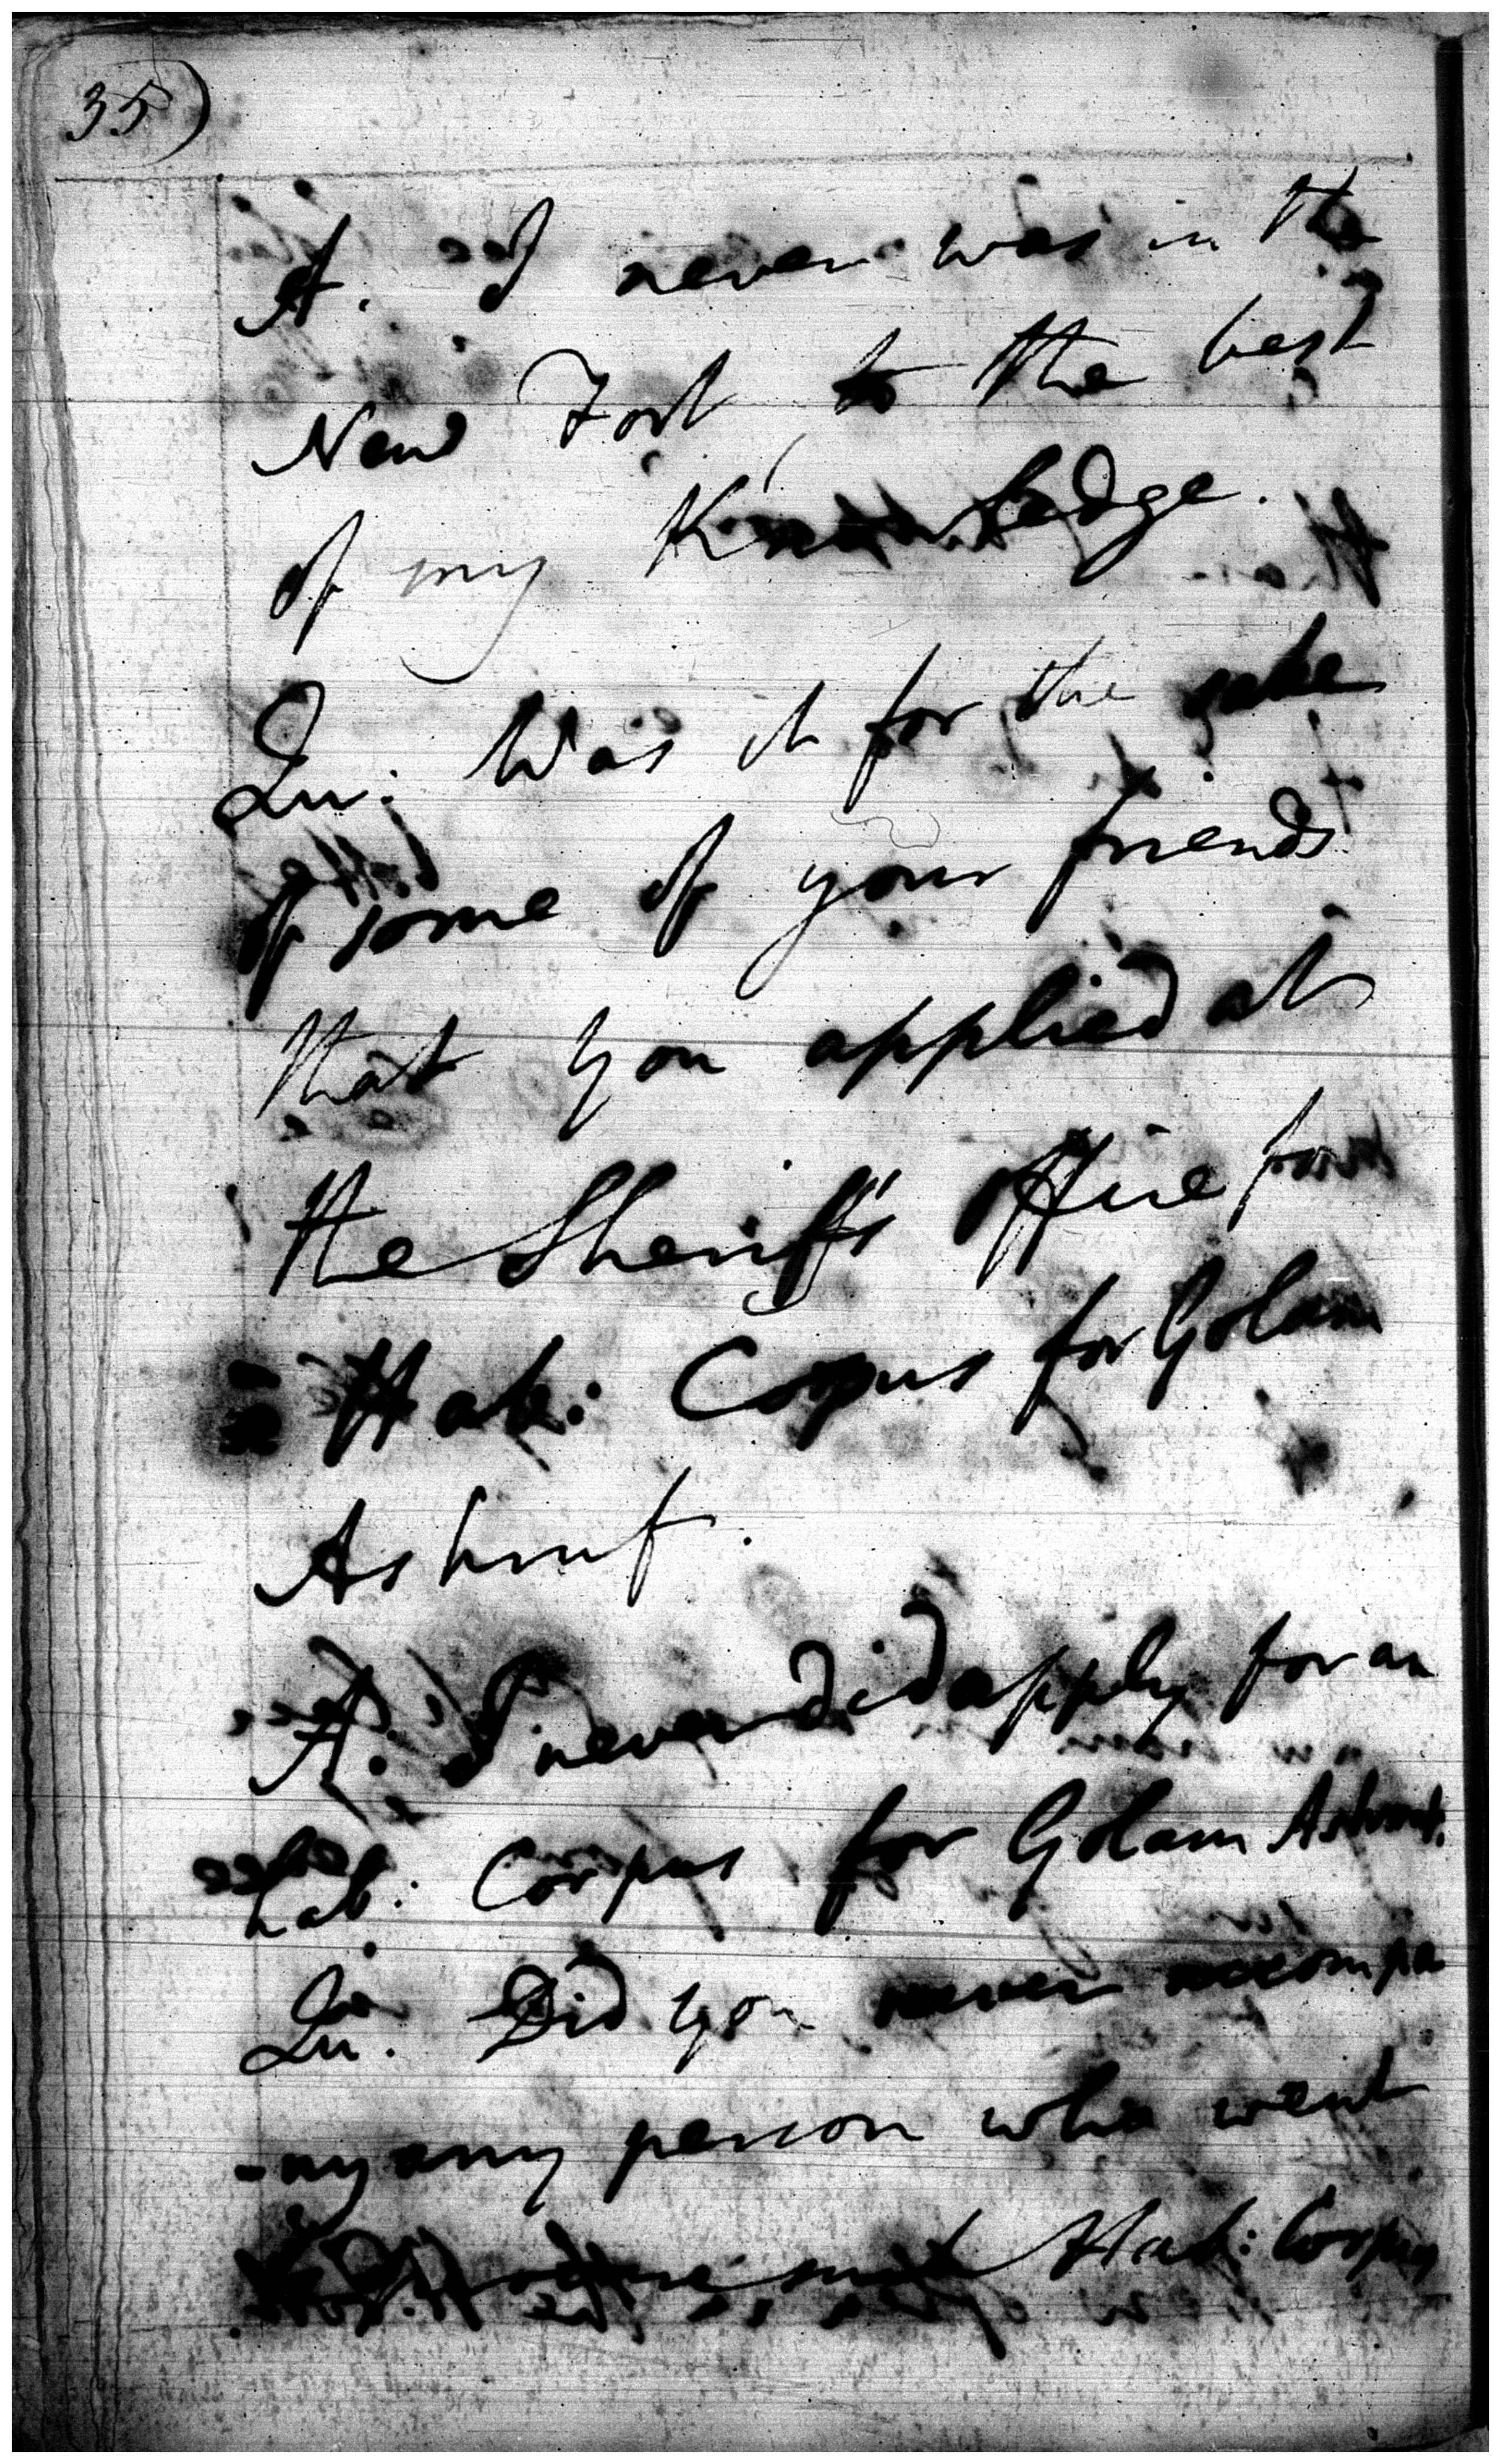 35)
A. I never was in the
New Fort to the best
of my Knowledge.
Qu: Was it for the sake
of some of your friends
that you applied at
the Sheriff's office for
a Hab: Corpus for Golam
Ashruf.
A: I never did apply for an
hab: Corpus for Golam Ashruf.
Qu. Did you never accompa
-ny any person who went
such Hab: Corpus